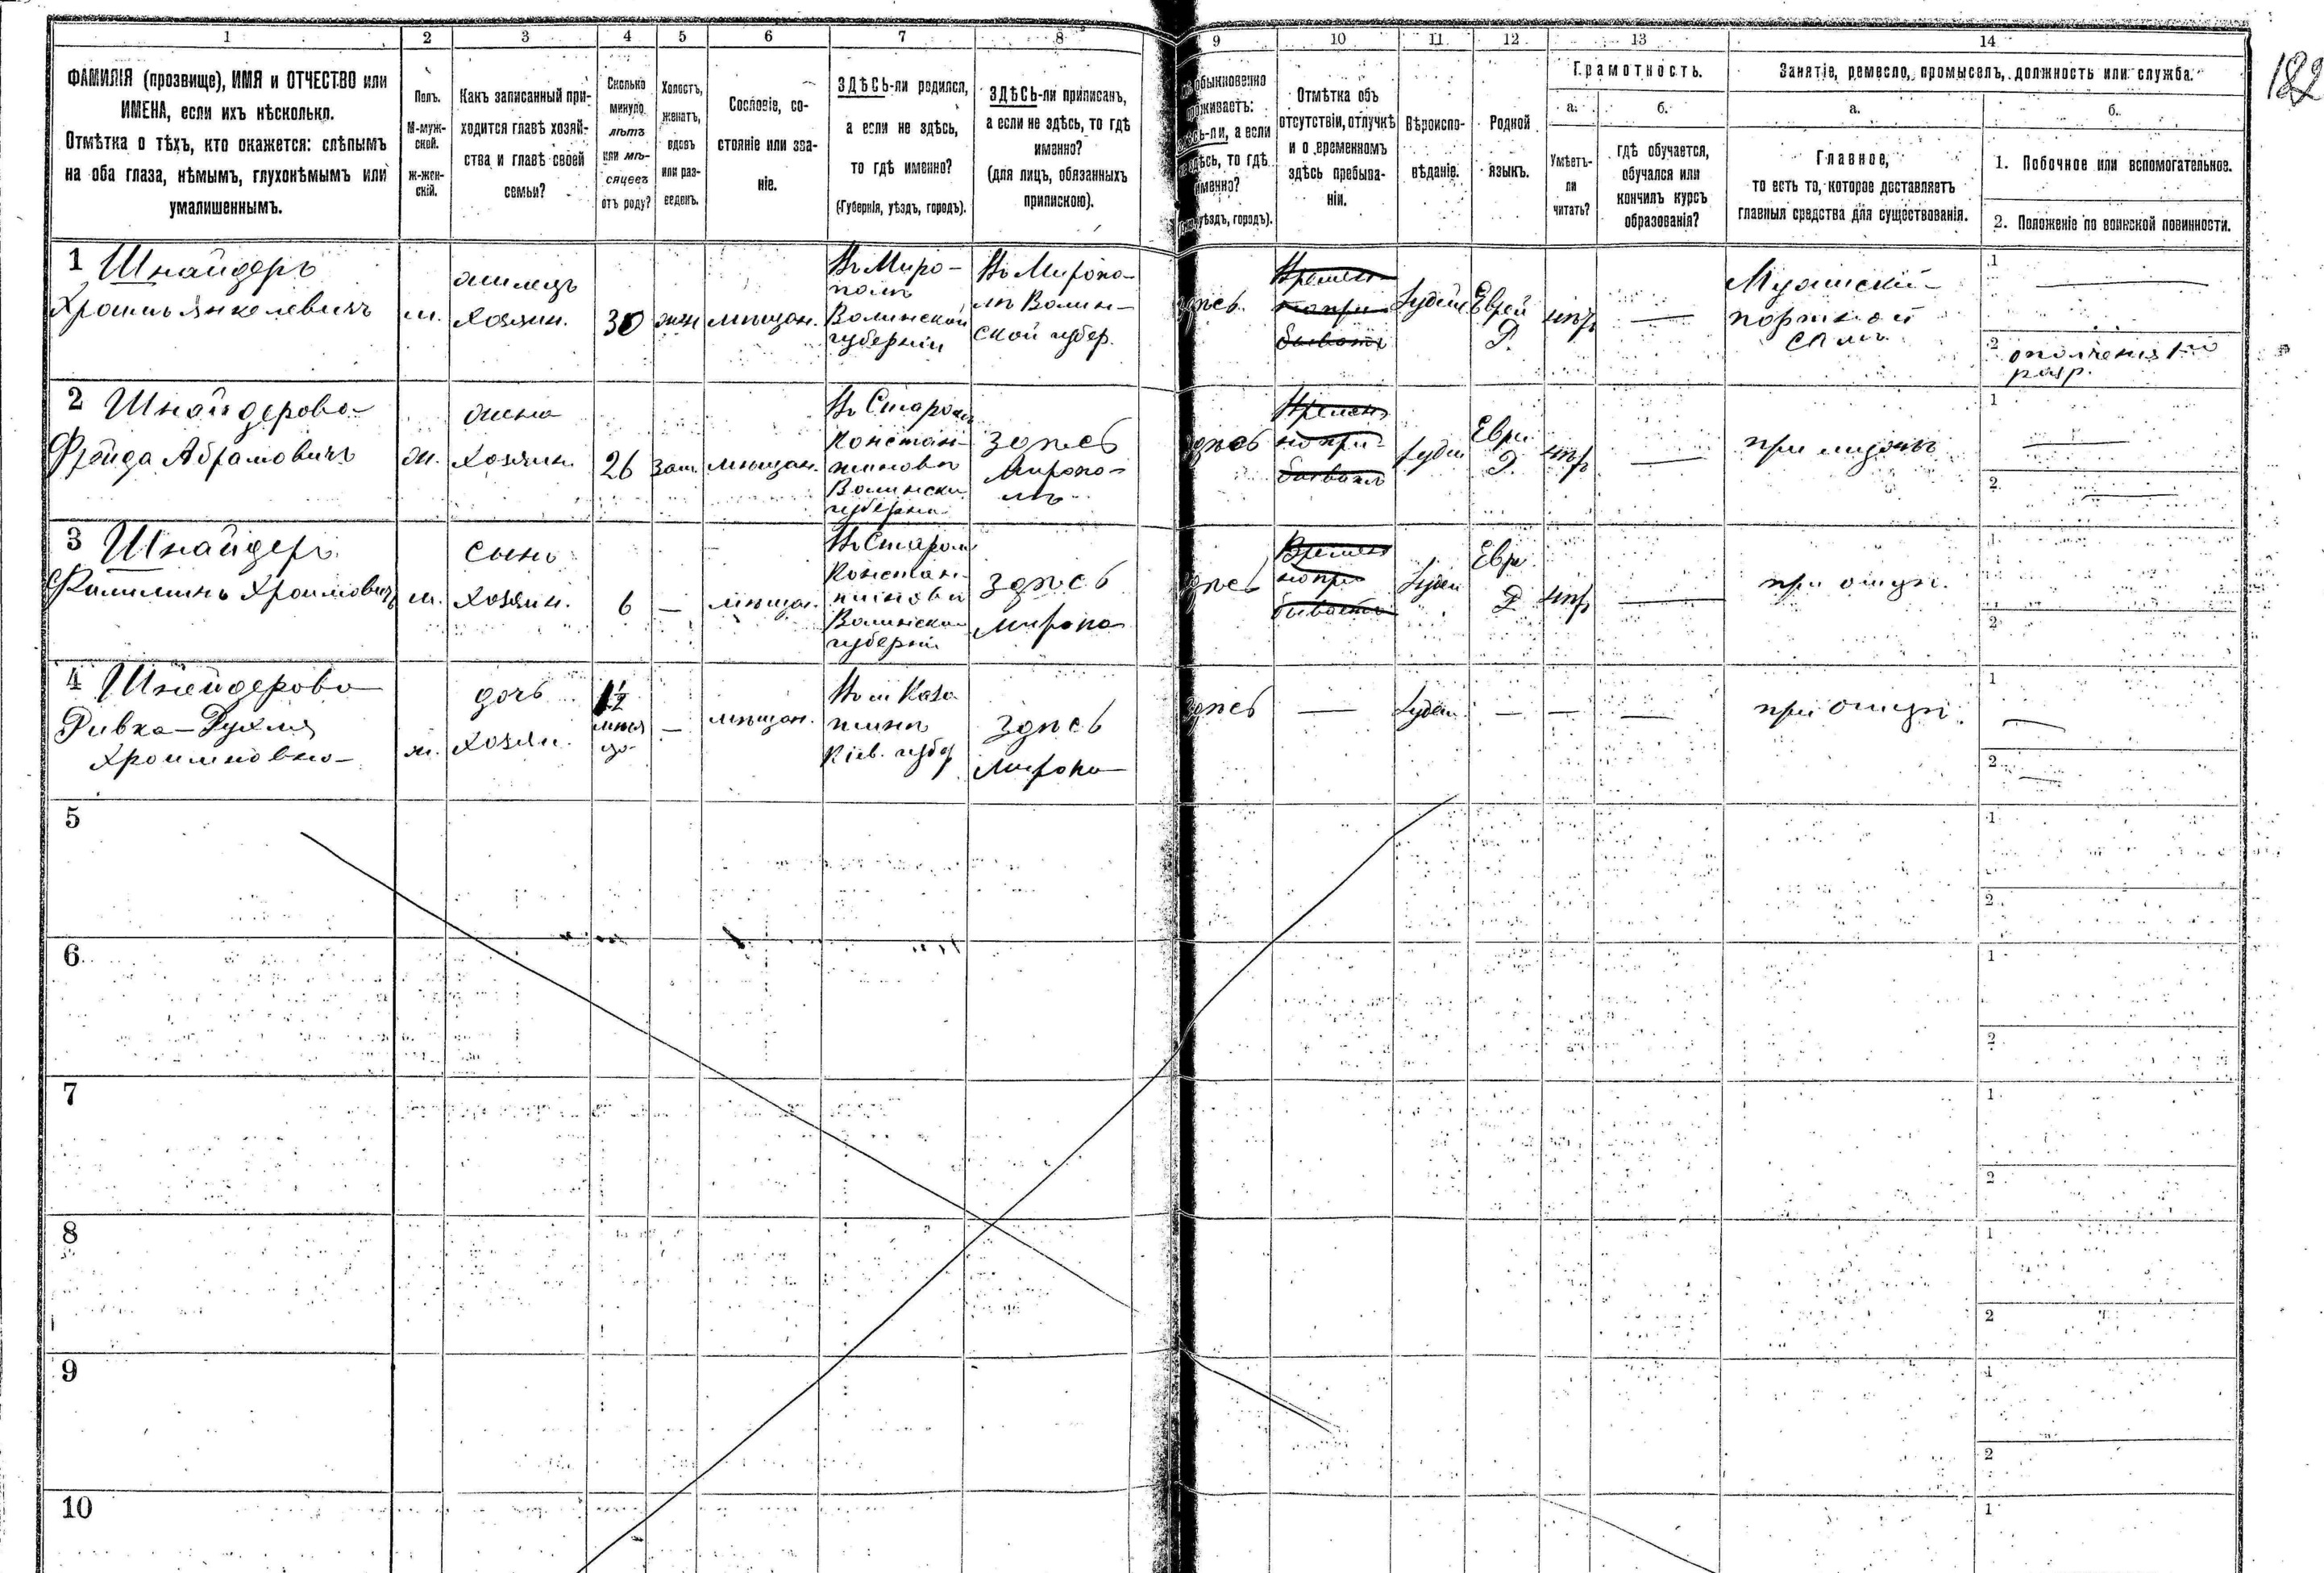 182
1 2 3 4 5 6 7 8 9 10 11 12 13 14
ФАМИЛІЯ (прозвище), ИМЯ и ОТЧЕСТВО или
ИМЕНА, если ихъ нѣсколько.
Отмѣтка о тѣхъ, кто окажется: слѣпымъ
на оба глаза, нѣмымъ, глухонѣмымъ или
умалишеннымъ.
Полъ.
М-муж-
ской.
Ж-жен-
скій.
Какъ записанный при-
ходится главѣ хозяй-
ства и главѣ своей
семьи?
Сколько
минуло
лѣтъ
или мѣ-
сяцевъ
отъ роду?
Холостъ,
женатъ,
вдовъ
или раз-
веденъ.
Сословіе, со-
стояніе или зва-
ніе.
ЗДѢСЬ-ли родился,
а если не здѣсь,
то гдѣ именно?
(Губернія, уѣздъ, городъ).
ЗДѢСЬ-ли приписанъ,
а если не здѣсь, то гдѣ
именно?
(для лицъ, обязанныхъ
припискою).
обыкновенно
проживаетъ:
а если
то гдѣ
именно?
уѣздъ, городъ).
Отмѣтка объ
отсутствіи, отлучкѣ
и о временномъ
здѣсь пребыва-
ніи.
Вѣроиспо-
вѣданіе.
Родной
языкъ.
Грамотность.
а.
Умѣетъ-
ли
читать?
б.
гдѣ обучается,
обучался или
кончилъ курсъ
образованія?
Занятіе, ремесло, промыселъ, должность или служба.
а.
Главное,
то есть то, которое доставляетъ
главныя средства для существованія.
б.
1. Побочное или вспомогательное.
2. Положеніе по воинской повинности.
1 Шнайдеръ
Хроимъ Янкелевичъ
м.
жилецъ
Хозяин.
30
жен
мѣщан.
Въ Миро-
полѣ
Волинской
губерніи
Въ Миропо-
лѣ Волин-
ской губер.
здѣсь
Времен-
но при-
бываетъ
Іудей
Еврей
нѣт
Мужской
портной
1
2 ополченія 1го
разр.
2 Шнайдерова
Фрейда Абрамовичъ
ж.
жена
Хозяин.
26
Зам.
мѣщан.
Въ Старом
Констан-
тинови
Волински
губерни
здѣсь
Миропо-
лѣ
здѣсь
Времен
но при-
бывает
Іудей
Евре
нѣт
при мужѣ
1
2
3 Шнайдеръ
Хроимовичъ
м.
сынъ
Хозяин.
6
мѣщан.
Въ Старом
Констан-
тинови
Волинской
губерніи
здѣсь
Миропо
здѣсь
Времен
но при
бываетъ
Іудей
Евре
нѣт
при отцѣ.
1
2
4 Шнейдерова
Ривка-Рухля
Хроимновна
ж.
дочь
Хозяи.
мѣщан.
Въ м Каза
тинѣ
Кіев. губер
здѣсь
Миропо
здѣсь
Іудей
при отцѣ.
1
2
5
1
2
6
1
2
7
1
2
8
1
2
9
1
2
10
1